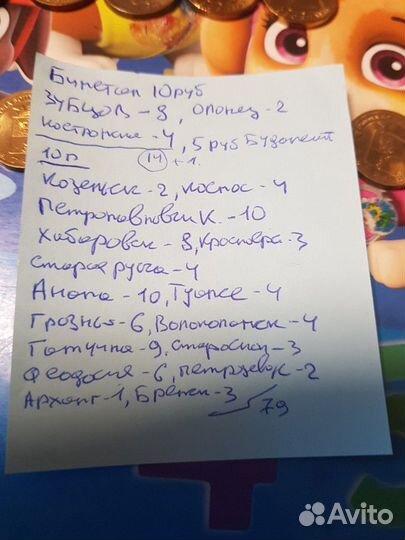 Биметал 10руб
Зубцов - 8, Олонец - 2
Кострома - 4, 5 руб Будапешт
10р (14) + 1.
Козельск - 2, Космос - 4
Петропавловск К. - 10
Хабаровск - 8, Краснояр - 3
Старая русса - 4
Анапа - 10, Туапсе - 4
Грозный - 6, Волоколамск - 4
Гатчина - 9, Староск - 3
Феодосия - 6, Петрзавок - 2
Арханг - 1, Брянск - 3
79
Avito